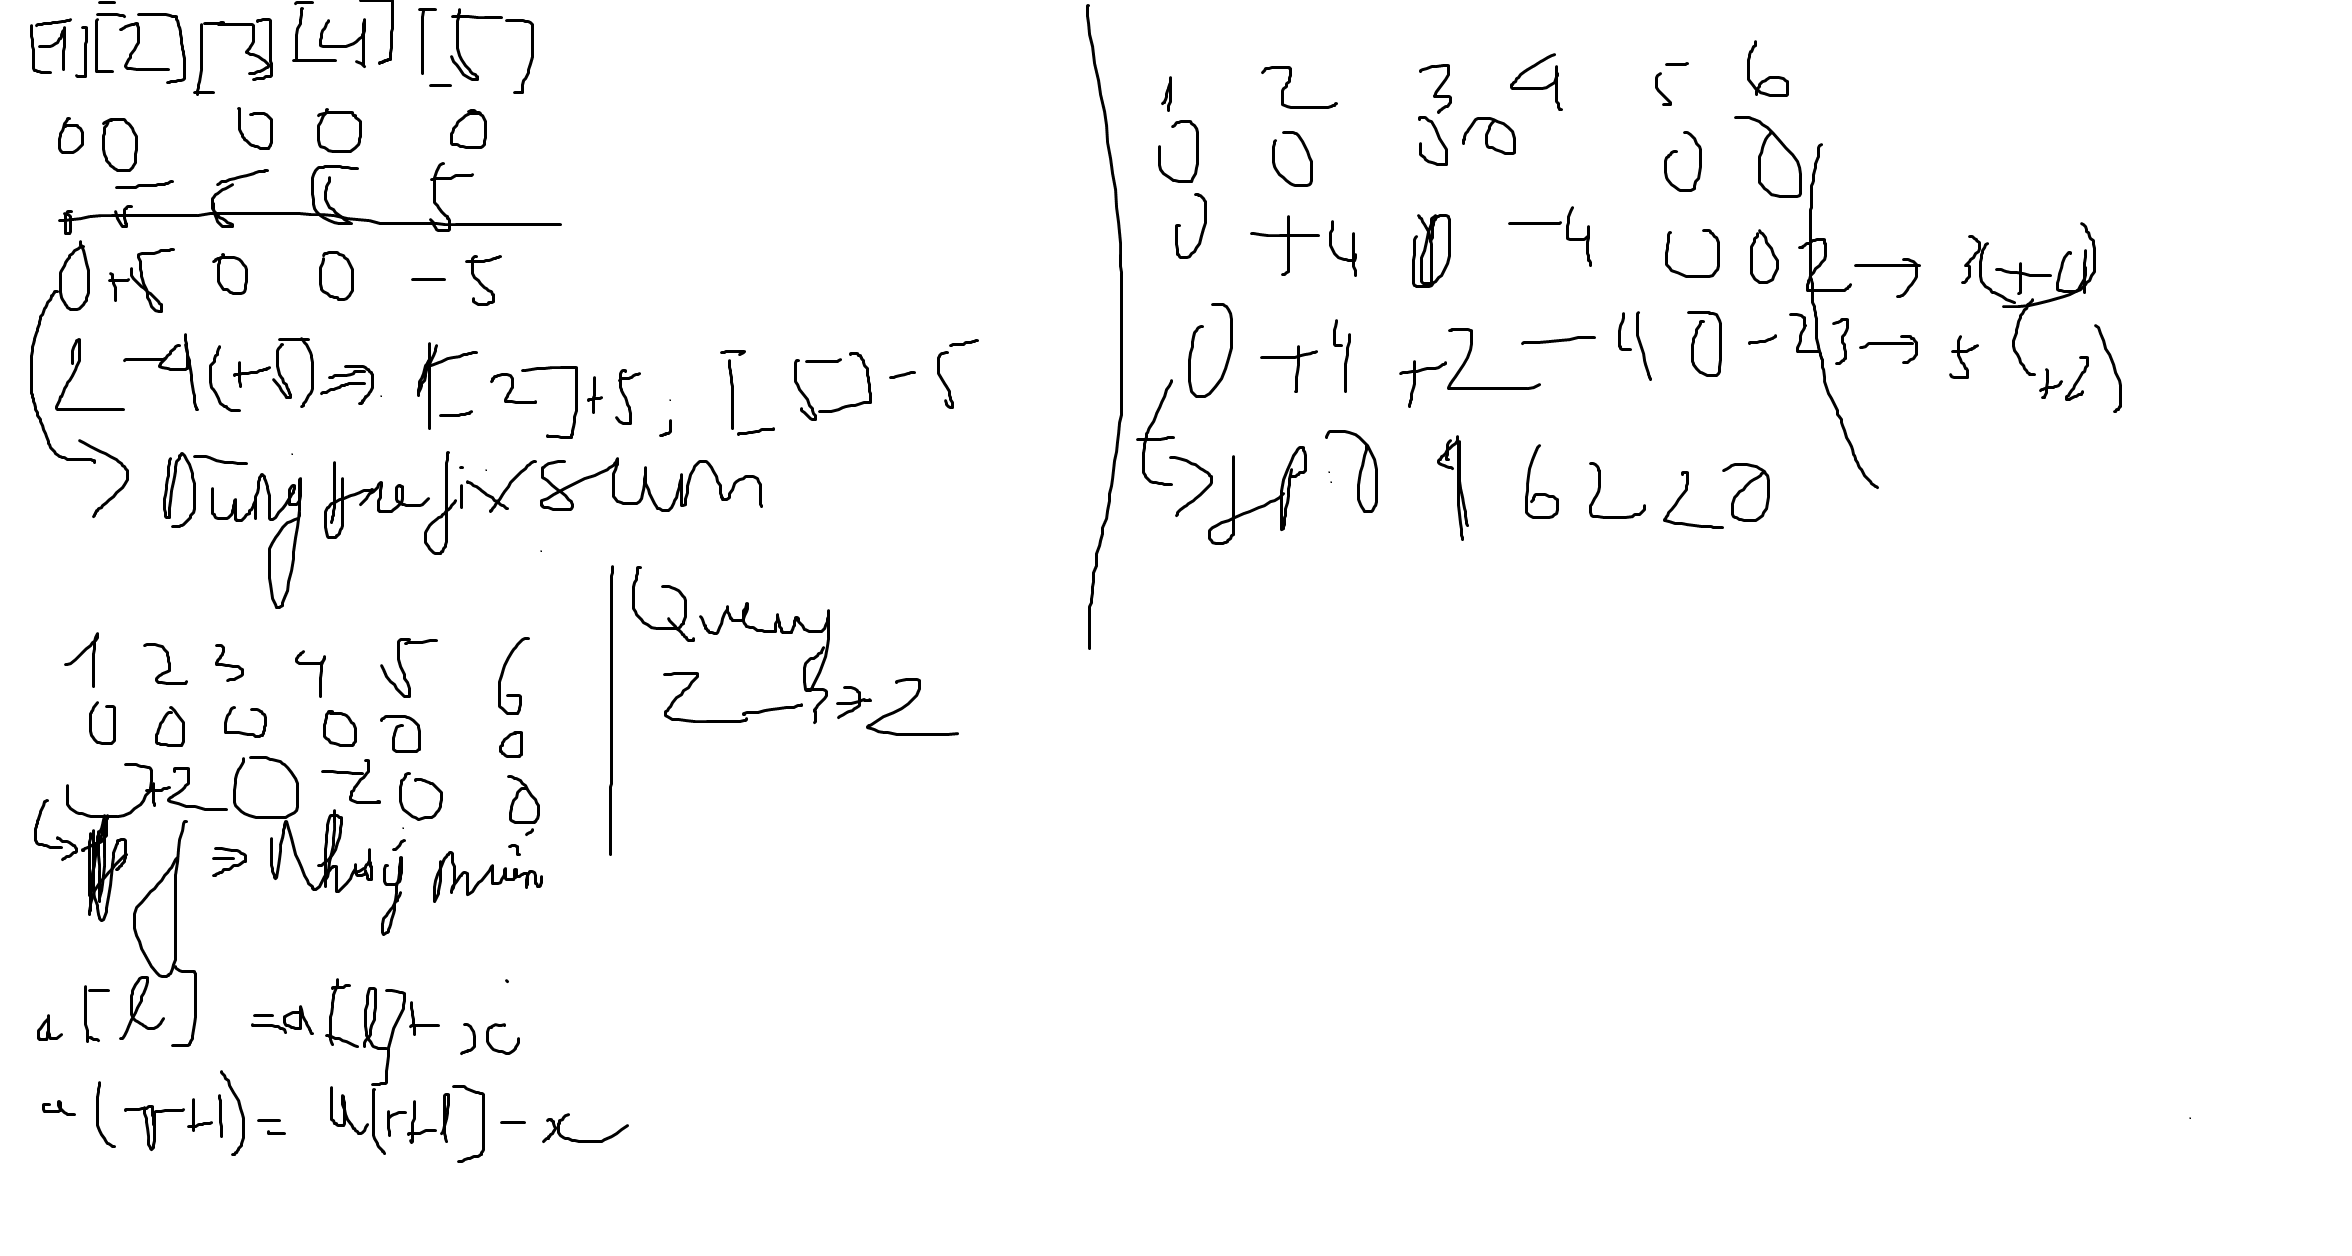 [1] [2] [3] [4] [5]
0 0 0 0 0
0 5 5 5 5
0 +5 0 0 -5
2 - 4 (+5) => [2]+5; [5]-5
Dùng prefix sum
1 2 3 4 5 6
0 0 0 0 0 0
0 +2 0 -2 0 0
=> Như ý muốn
a[l] = a[l] + x
a(r+1) = a[r+1] - x
Query
2 - 3 => 2
1 2 3 4 5 6
0 0 0 0 0 0
0 +4 0 -4 0 0 2 -> 3 (+4)
0 +4 +2 -4 0 -2 3 -> 5 (+2)
fp 0 4 6 2 2 0